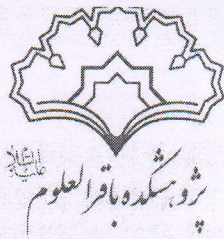 پژوهشکده باقرالعلوم علیه‌السلام